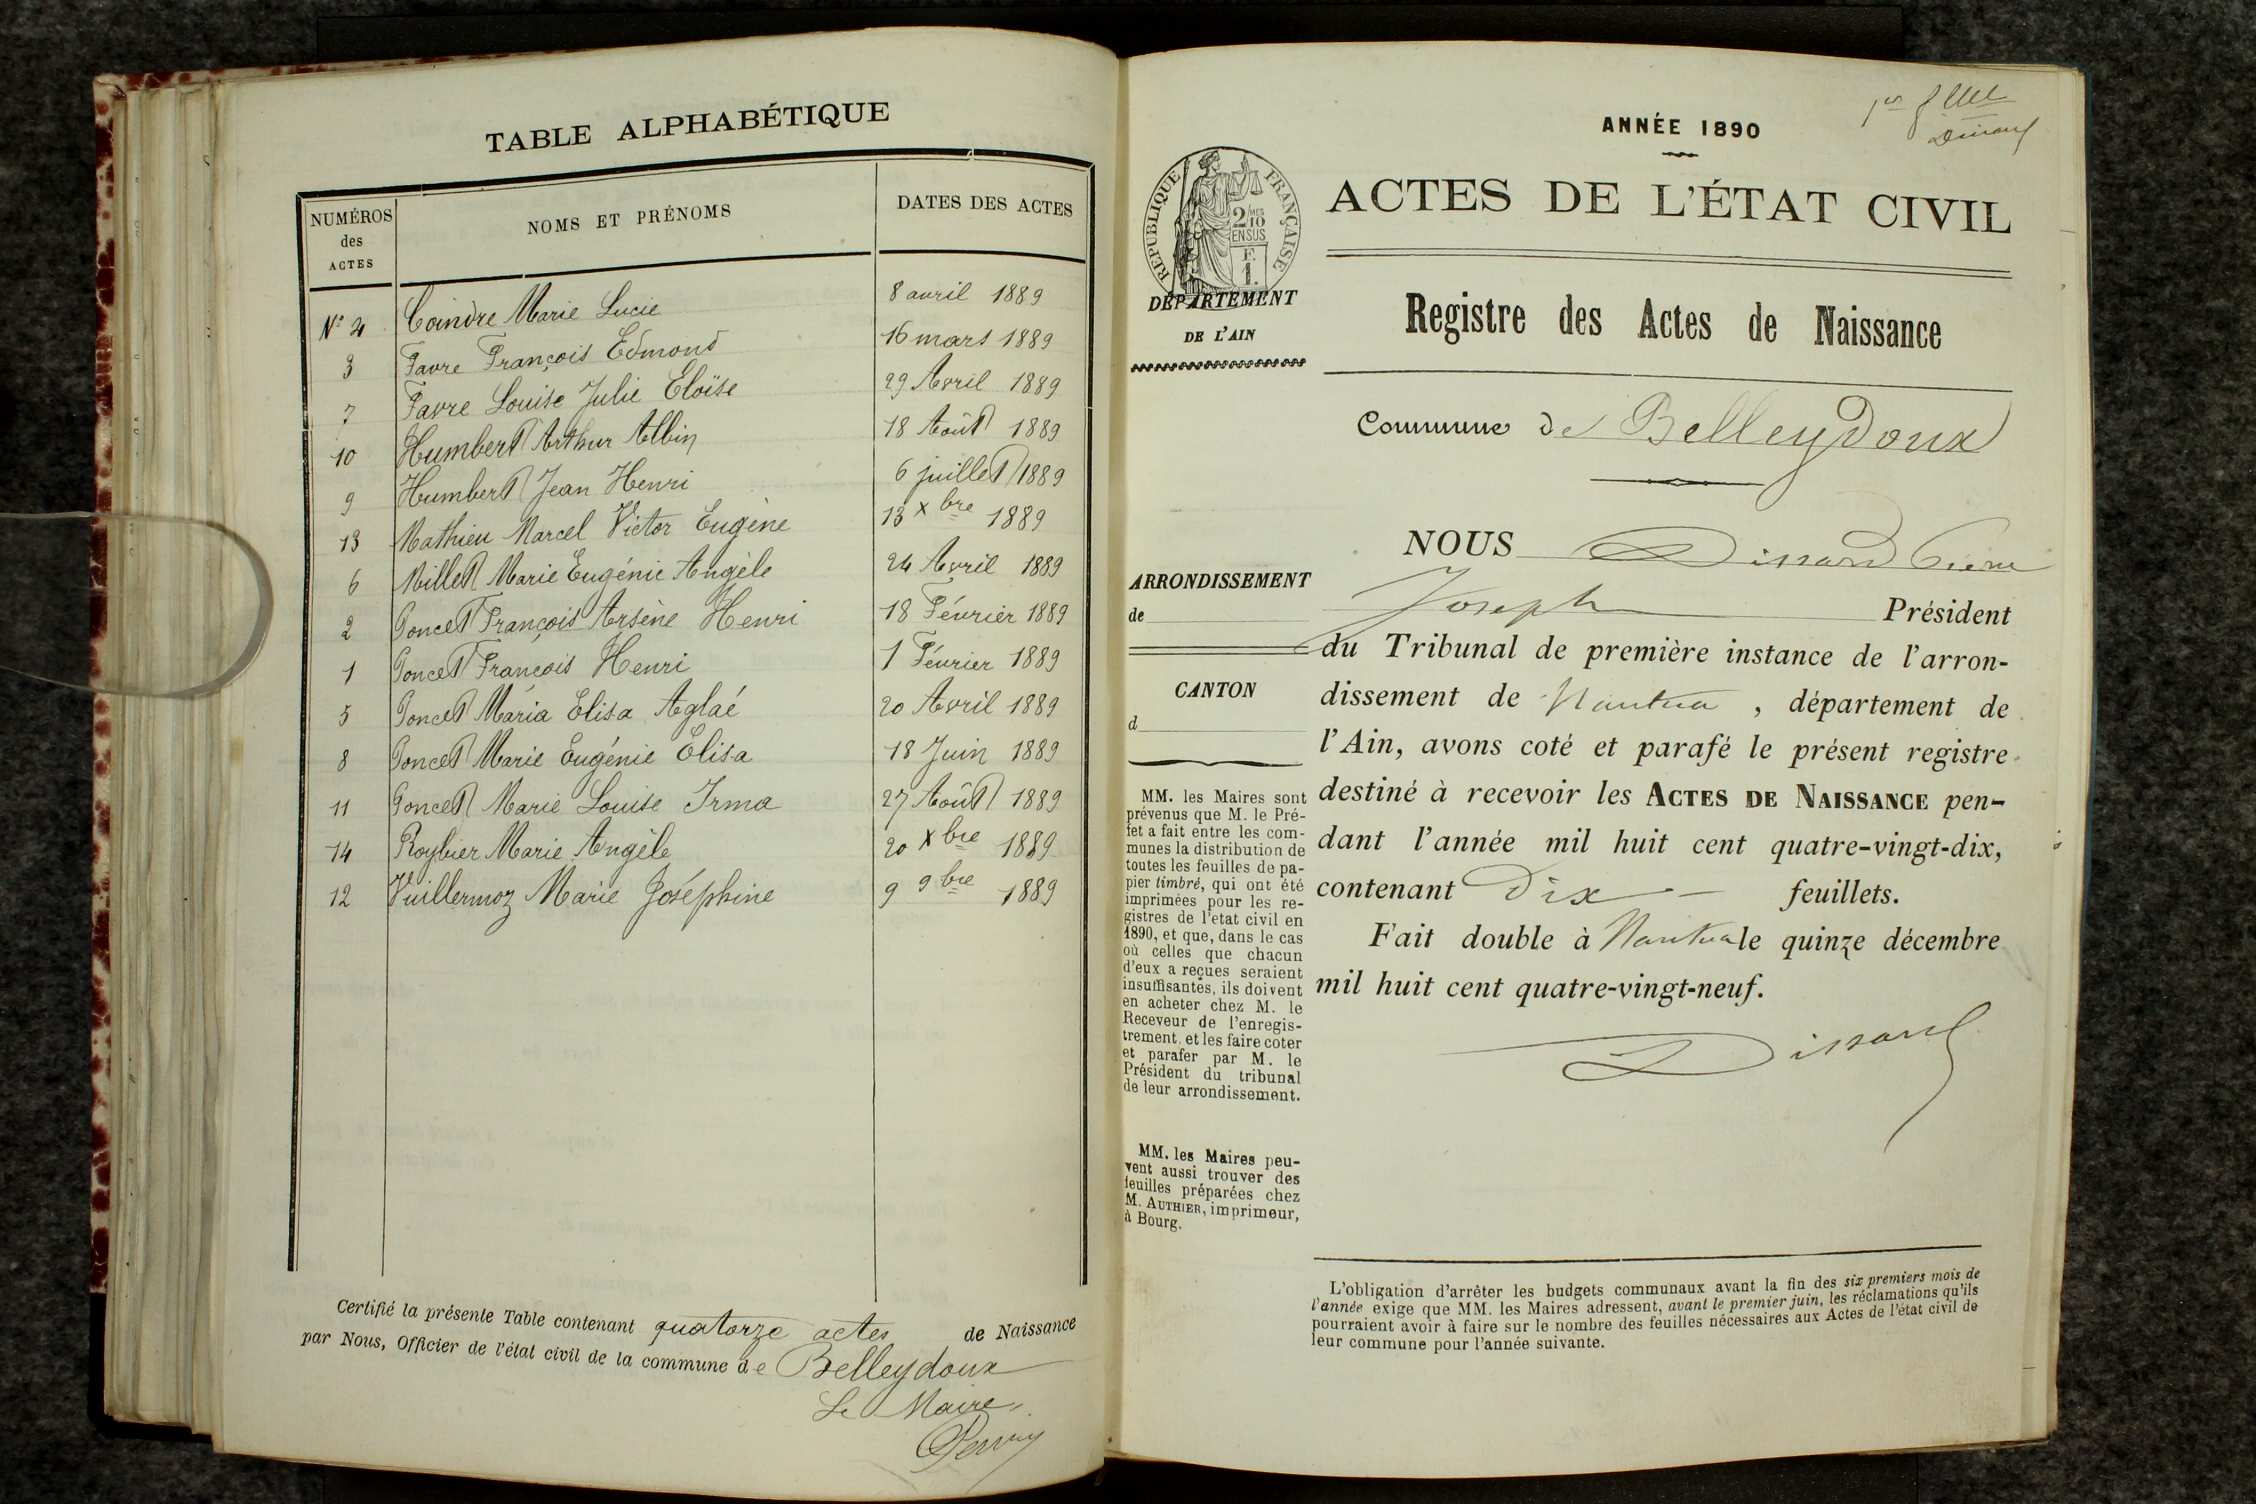 TABLE ALPHABÉTIQUE
NUMÉROS des ACTES
NOMS ET PRÉNOMS
DATES DES ACTES
N° 4 Coindre Marie Lucie 8 avril 1889
3 Favre François Edmond 16 mars 1889
7 Favre Louise Julie Eloïse 29 Avril 1889
10 Humbert Arthur Albin 18 Août 1889
9 Humbert Jean Henri 6 juillet 1889
13 Mathieu Marcel Victor Eugène 13 xbre 1889
6 Millet Marie Eugénie Angèle 24 Avril 1889
2 Poncet François Arsène Henri 18 Février 1889
1 Poncet François Henri 1 Février 1889
5 Poncet Maria Elisa Aglaé 20 Avril 1889
8 Poncet Marie Eugénie Elisa 18 Juin 1889
11 Poncet Marie Louise Irma 27 Août 1889
14 Roybier Marie Angèle 20 xbre 1889
12 Vuillermoz Marie Joséphine 9 9bre 1889
Certifié la présente Table contenant quatorze actes de Naissance
par Nous, Officier de l'état civil de la commune de Belleydoux
Le Maire,
ANNÉE 1890
1er
Dissard
RÉPUBLIQUE FRANÇAISE
2/10 MES
EN SUS
F.
1.
ACTES DE L'ÉTAT CIVIL
DÉPARTEMENT
DE L'AIN
Registre des Actes de Naissance
Commune de Belleydoux
ARRONDISSEMENT
de
CANTON
d
NOUS Dissard Pierre
Joseph Président
du Tribunal de première instance de l'arron-
dissement de Nantua, département de
l'Ain, avons coté et parafé le présent registre
destiné à recevoir les ACTES DE NAISSANCE pen-
dant l'année mil huit cent quatre-vingt-dix,
contenant Dix feuillets.
Fait double à Nantua le quinze décembre
mil huit cent quatre-vingt-neuf.
Dissard
MM. les Maires sont
prévenus que M. le Pré-
fet a fait entre les com-
munes la distribution de
toutes les feuilles de pa-
pier timbré, qui ont été
imprimées pour les re-
gistres de l'etat civil en
1890, et que, dans le cas
où celles que chacun
d'eux a reçues seraient
insuffisantes, ils doivent
en acheter chez M. le
Receveur de l'enregis-
trement, et les faire coter
et parafer par M. le
Président du tribunal
de leur arrondissement.
MM. les Maires peu-
vent aussi trouver des
feuilles préparées chez
M. AUTHIER, imprimeur,
à Bourg.
L'obligation d'arrêter les budgets communaux avant la fin des six premiers mois de
l'année exige que MM. les Maires adressent, avant le premier juin, les réclamations qu'ils
pourraient avoir à faire sur le nombre des feuilles nécessaires aux Actes de l'état civil de
leur commune pour l'année suivante.